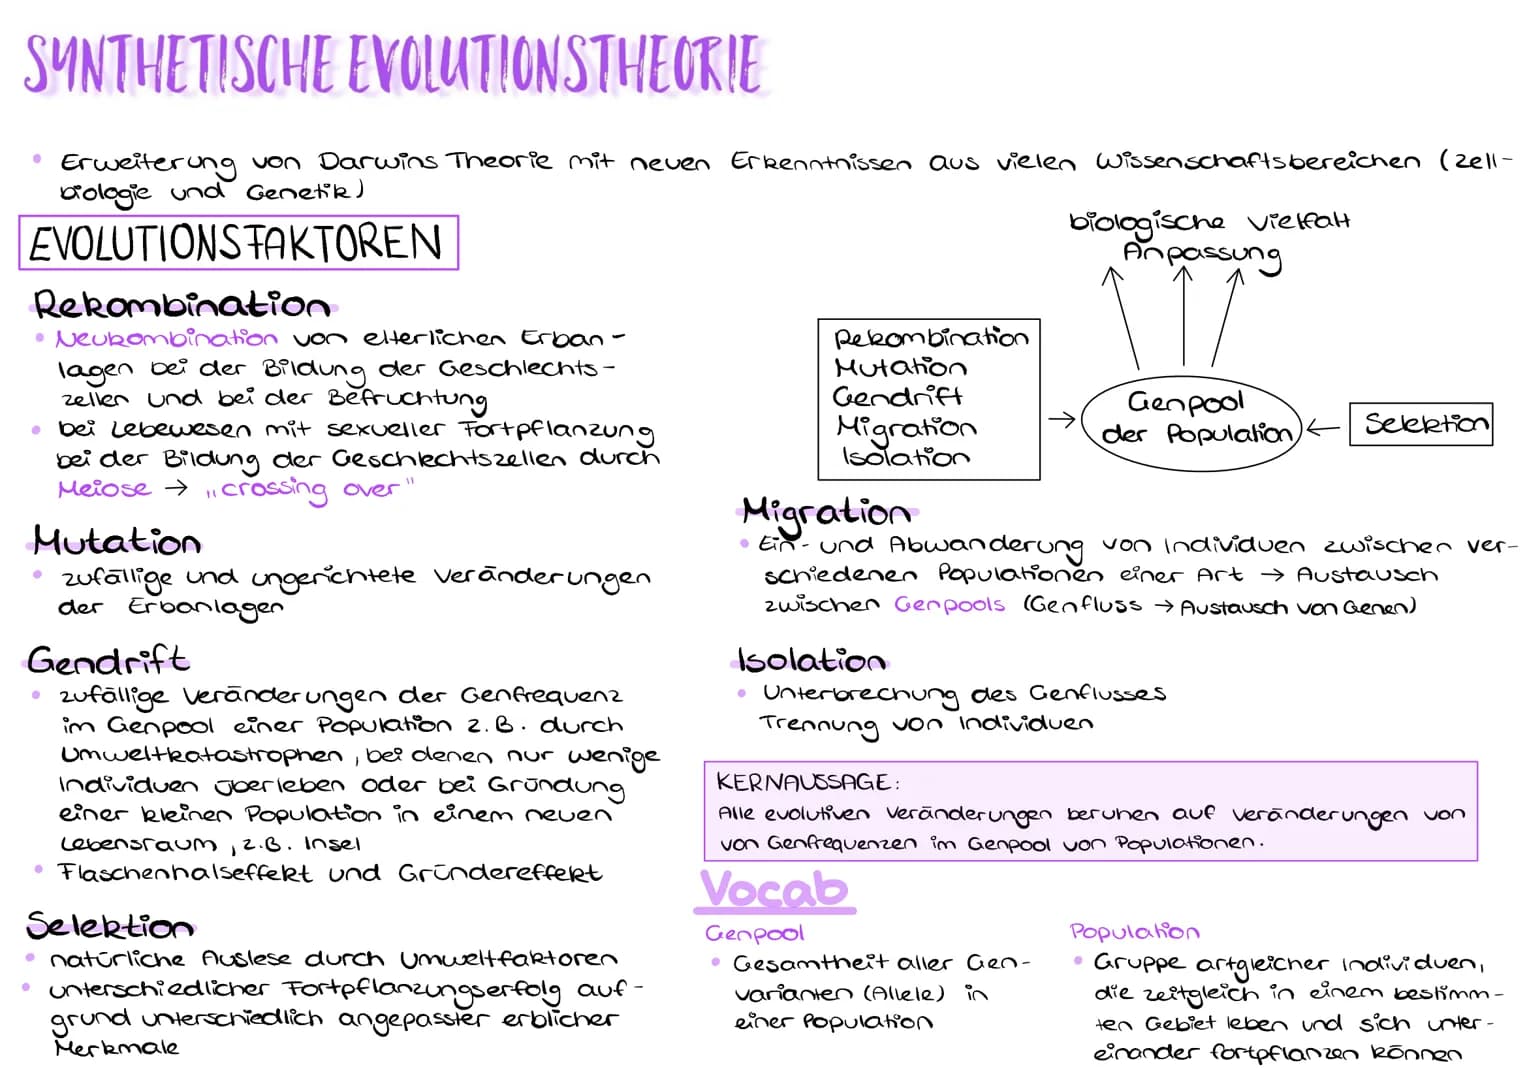 SYNTHETISCHE EVOLUTIONSTHEORIE
• Erweiterung von Darwins Theorie mit neuen Erkenntnissen aus vielen Wissenschaftsbereichen (Zell-
biologie und Genetik)
EVOLUTIONSFAKTOREN
Rekombination
• Neukombination von elterlichen Erban-
lagen bei der Bildung der Geschlechts-
zellen und bei der Befruchtung
• bei Lebewesen mit sexueller Fortpflanzung
bei der Bildung der Geschlechtszellen durch
Meiose → „crossing over"
Mutation
• zufällige und ungerichtete Veränderungen
der Erbanlagen
Gendrift
• zufällige Veränderungen der Genfrequenz
im Genpool einer Population z.B. durch
Umweltkatastrophen, bei denen nur wenige
Individuen überleben oder bei Gründung
einer kleinen Population in einem neuen
Lebensraum, z.B. Insel
• Flaschenhalseffekt und Gründereffekt
Selektion
• natürliche Auslese durch Umweltfaktoren
• unterschiedlicher Fortpflanzungserfolg auf-
grund unterschiedlich angepasster erblicher
Merkmale
biologische Vielfalt
Anpassung
Rekombination
Mutation
Gendrift
Migration
Isolation
→
Genpool
der Population
←
Selektion
Migration
• Ein- und Abwanderung von Individuen zwischen ver-
schiedenen Populationen einer Art → Austausch
zwischen Genpools (Genfluss → Austausch von Genen)
Isolation
• Unterbrechung des Genflusses
Trennung von Individuen
KERNAUSSAGE:
Alle evolutiven Veränderungen beruhen auf Veränderungen von
von Genfrequenzen im Genpool von Populationen.
Vocab
Genpool
• Gesamtheit aller Gen-
varianten (Allele) in
einer Population
Population
• Gruppe artgleicher Individuen,
die zeitgleich in einem bestimm-
ten Gebiet leben und sich unter-
einander fortpflanzen können